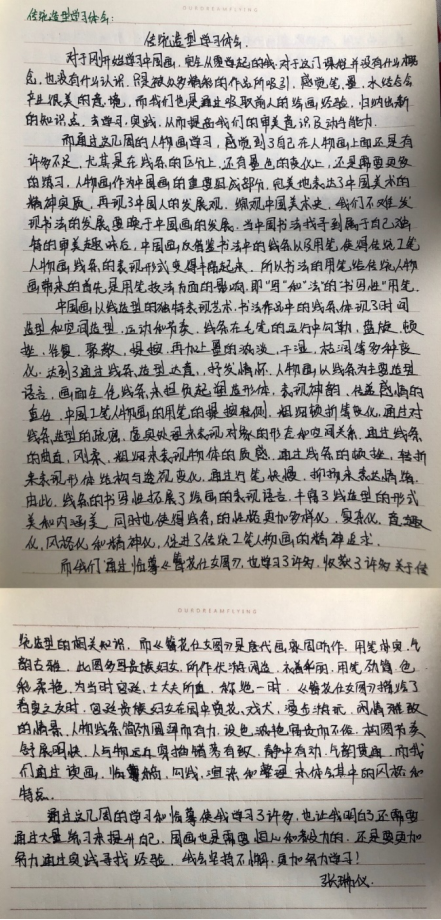 OURDREAMFLYING
传统造型学习体会:
传统造型学习体会.
对于刚开始学习中国画,到从壹世起的我,对于这门课程并没有什么概
念,也没有什么认识,只是被众多精the的作品所吸引,感觉笔、墨、水结合会
产生很美的意境,而我们也是通过吸取前人的绘画经验,归纳出新
的知识点,去学习,实践,从而提高我们的审美意识及动手能力.
而通过这几周的人物画学习,感觉到了自己在人物画上面还是有
许多不足,尤其是在线条的区分上,还有墨色的变化上,还是需要更多
的练习,人物画作为中国画的重要组成部分,完美地表达了中国美术的
精神实质,再现了中国人的发展观.综观中国美术史,我们不难发
现书法的发展要映于中国画的发展.当中国书法找寻到属于自己独
特的审美趣味后,中国画反借鉴书法中的线条以及用笔,使得传统工笔
人物画线条的表现形式变得丰富起来.所以书法的用笔给传统人物
画带来的首先是用笔技法方面的影响,即“写”和“法”的“书写性”用笔.
中国画以线造型的独特表现艺术,书法作品中的线条,体现了时间
造型和空间造型,运动和节奏,线条在毛笔的运行中勾勒,盘旋、顿
挫、往复、聚散、提按,再加上墨的浓淡、干湿、枯润等多种变
化,达到了通过线条,造型达真,抒发情怀.人物画以线条为主要造型
语言,画面全凭线条来担负起塑造形体,表现神韵,传盖感情的
重任.中国工笔人物画的用笔的提按轻侧,粗细顿折等变化,通过对
线条造型的疏密,虚实处理来表现对象的形态和空间关系,通过线条
的曲直、刚柔、粗细来表现物体的质感,通过线条的顿挫、转折
来表现形体结构与透视变化,通过行笔快慢、抑扬来表达情绪.
由此,线条的书写性拓展了绘画的表现语言,丰富了线造型的形式
美和内涵美,同时也使得线条的性格更加多样化、复杂化、意趣
化、风格化和精神化,促进了传统工笔人物画的精神追求.
而我们通过临摹《簪花仕女图》,也学习了许多,收获了许多关于传
OURDREAMFLYING
统造型的相关知识,而《簪花仕女图》是唐代画家周昉作,用笔朴实,气
韵古雅.此图多写贵族妇女,所作优游闲逸,衣着华丽,用笔劲简,色
彩柔艳,为当时宫廷,士大夫所重,称绝一时.《簪花仕女图》描绘了
春夏之交时,宫廷贵族妇女在园中赏花、戏犬、漫步游玩、闲情雅致
的情景,人物线条,简劲圆浑而有力,设色浓艳富贵而不俗,构图节奏
舒展明快,人与物远近穿插错落有致,静中有动,气韵贯通.而我
们通过读画、临摹稿、勾线、渲染和整理来体会其中的风格和
特点.
通过这几周的学习和临摹使我学习了许多,也让我明白了还需要
通过大量练习来提升自己,国画也是需要恒心和毅力的,还是要更加
努力通过实践寻找经验,我会坚持不懈,更加努力学习!